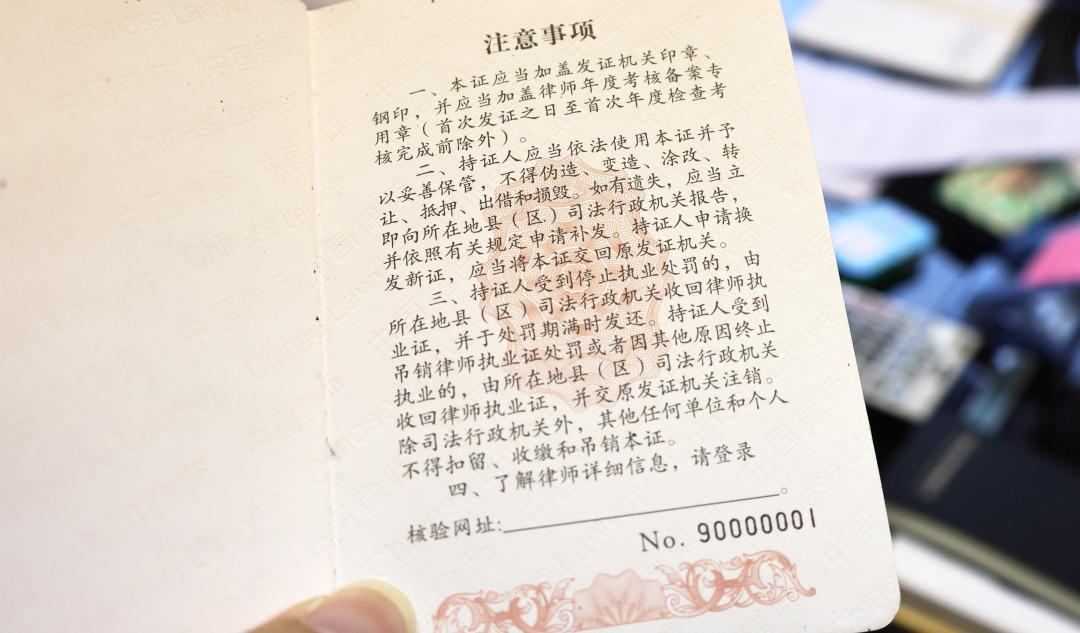 注意事项
一、本证应当加盖发证机关印章、
钢印，并应当加盖律师年度考核备案专
用章（首次发证之日至首次年度检查考
核完成前除外）。
二、持证人应当依法使用本证并予
以妥善保管，不得伪造、变造、涂改、转
让、抵押、出借和损毁。如有遗失，应当立
即向所在地县（区）司法行政机关报告，
并依照有关规定申请补发。持证人申请换
发新证，应当将本证交回原发证机关。
三、持证人受到停止执业处罚的，由
所在地县（区）司法行政机关收回律师执
业证，并于处罚期满时发还。持证人受到
吊销律师执业证处罚或者因其他原因终止
执业的，由所在地县（区）司法行政机关
收回律师执业证，并交原发证机关注销。
除司法行政机关外，其他任何单位和个人
不得扣留、收缴和吊销本证。
四、了解律师详细信息，请登录
核验网址:＿＿＿＿＿＿＿＿＿＿。
No. 90000001